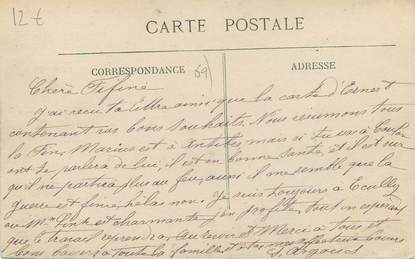 12 €
CARTE POSTALE
CORRESPONDANCE
69
ADRESSE
Chère Fifine
J'ai reçu ta lettre ainsi que la carte d'Ernest
contenant vos bons souhaits. Nous vous tous
la Fin, Marius est à mais si tu vas à
on te parlera de lui, il est en bonne santé, et il est sur
qu'il ne partira plus au feu, aussi il me semble que la
guerre est finie, hélas non. Je suis toujours à Ecully
ou Mme est charmante j'en profite, tout en espérant
que le travail reprendra. Au revoir et Merci à tous et
bons baisers à toute la famille